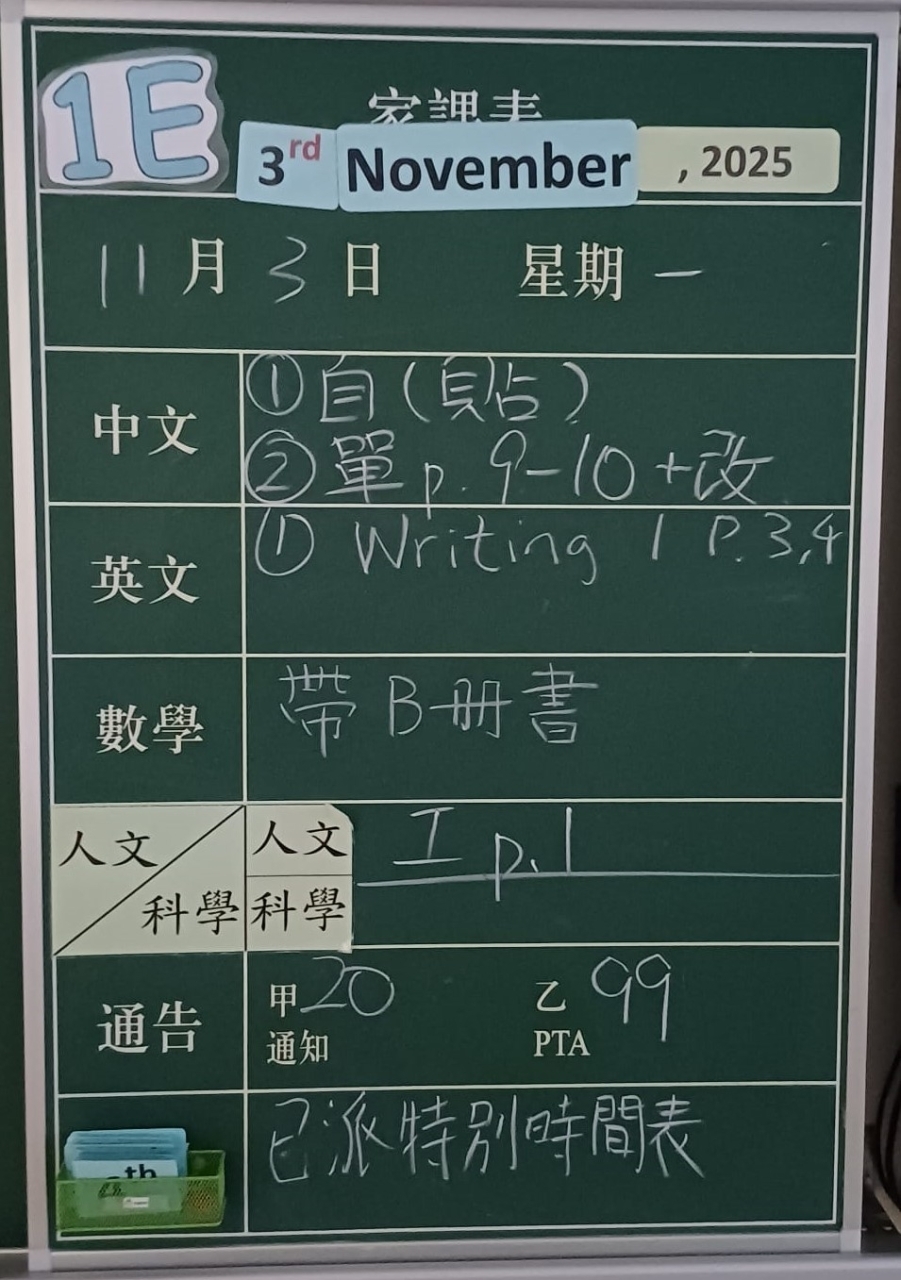 1E
家課表
3rd November , 2025
11月3日 星期一
中文
①自(貼)
②單p.9-10+改
英文
① Writing 1 P.3,4
數學
帶B册書
人文
科學
人文
工 p.1
科學
通告
甲 20 乙 99
通知 PTA
已派特別時間表
th